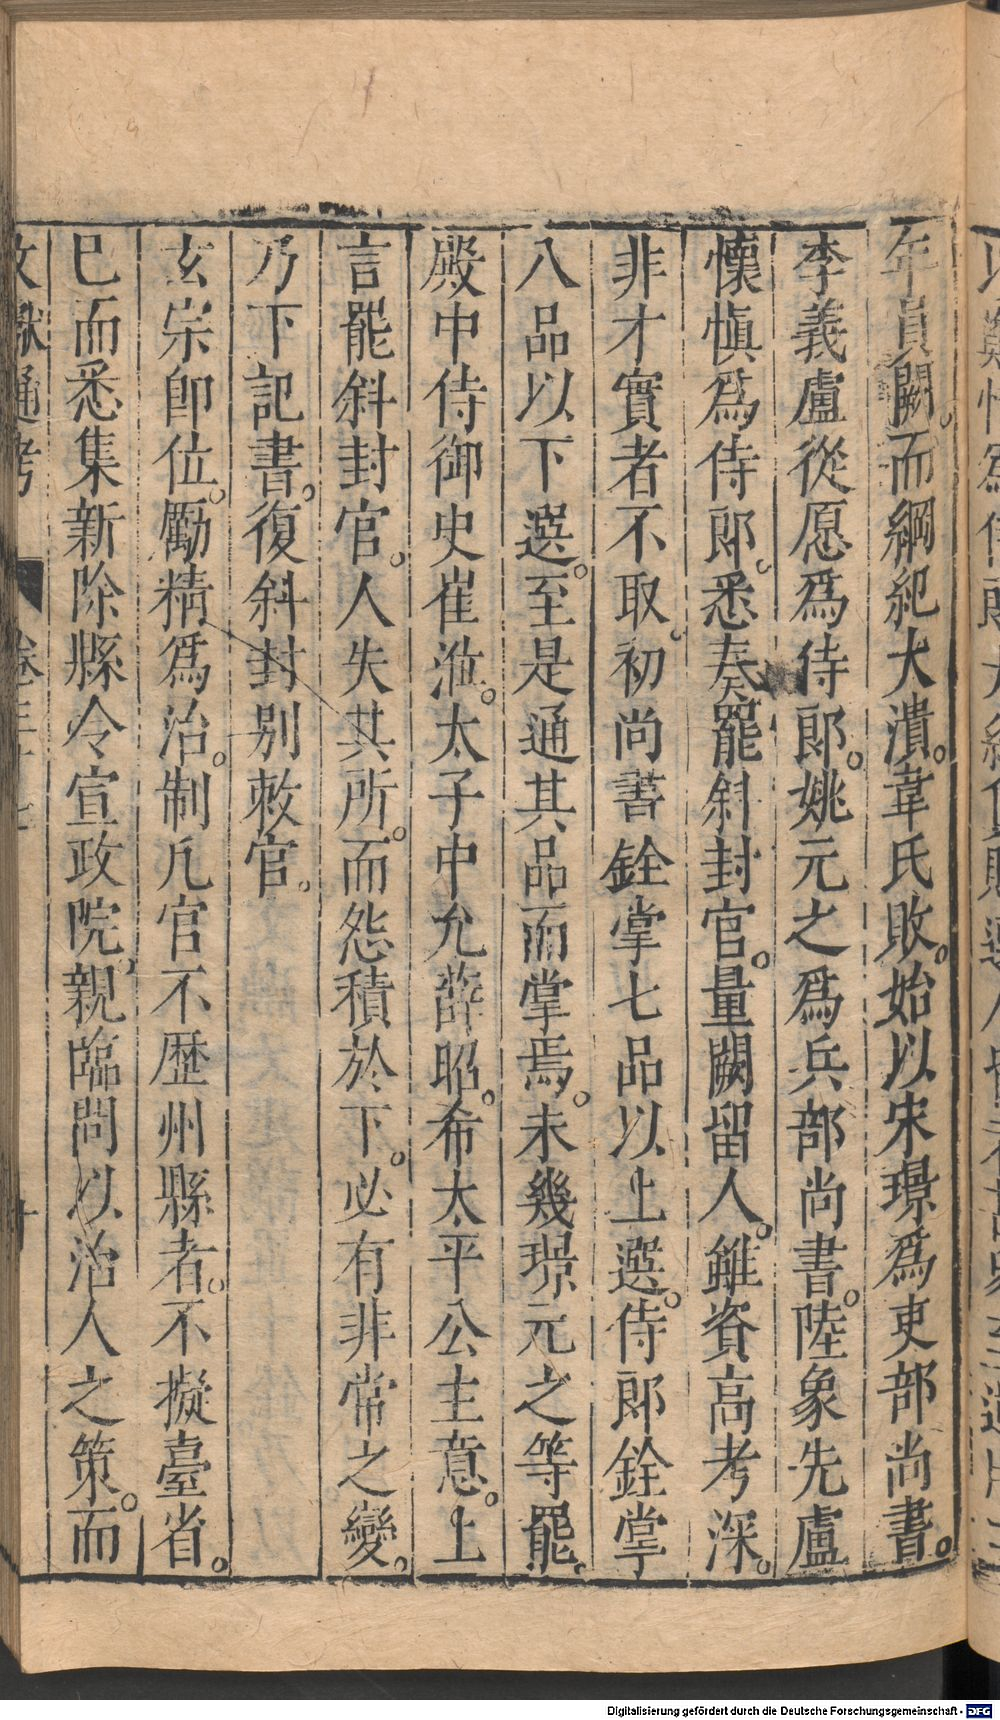 年員闕。而綱紀大潰。韋氏敗。始以宋璟爲吏部尚書。
李義盧從愿爲侍郎。姚元之爲兵部尚書。陸象先盧
懷慎爲侍郎。悉奏罷斜封官。量闕留人。雖資高考深。
非才實者不取。初尚書銓掌七品以上選。侍郎銓掌
八品以下選。至是通其品而掌焉。未幾璟元之等罷。
殿中侍御史崔涖。太子中允薛昭。希太平公主意。上
言罷斜封官。人失其所。而怨積於下。必有非常之變。
乃下記書。復斜封別敕官。
玄宗即位。勵精爲治。制凡官不歷州縣者。不擬臺省。
已而悉集新除縣令宣政院。親臨問以治人之策。而
文獻通考 卷三十七
Digitalisierung gefördert durch die Deutsche Forschungsgemeinschaft - DFG